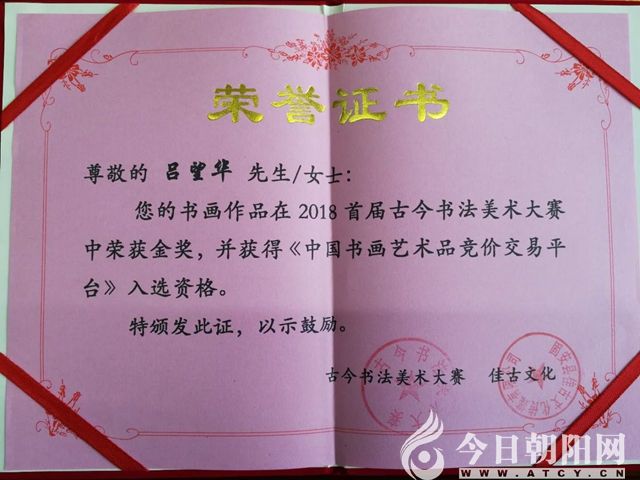 荣誉证书
尊敬的 吕望华 先生/女士:
您的书画作品在2018首届古今书法美术大赛
中荣获金奖，并获得《中国书画艺术品竞价交易平
台》入选资格。
特颁发此证，以示鼓励。
古今书法美术大赛 佳古文化
今日朝阳网
WWW.ATCY.CN